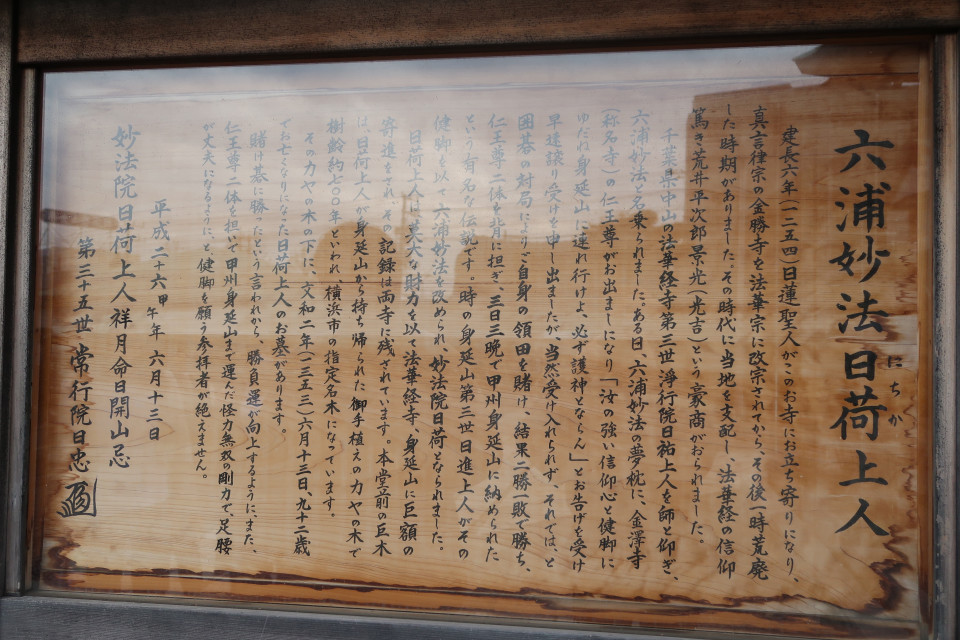 六浦妙法日荷上人
にちか
建長六年(一二五四)日蓮聖人がこのお寺にお立ち寄りになり、
真言律宗の金勝寺を法華宗に改宗されてから、その後一時荒廃
した時期がありました。その時代に当地を支配し、法華経の信仰
篤き荒井平次郎景光(光吉)という豪商がおられました。
千葉県中山の法華経寺第三世淨行院日祐上人を師と仰ぎ、
六浦妙法と名乗られました。ある日、六浦妙法の夢枕に、金澤寺
(称名寺)の仁王尊がお出ましになり「汝の強い信仰心と健脚に
ゆだね身延山に連れ行けよ、必ず護神とならん」とお告げを受け
早速譲り受けを申し出ましたが当然受け入れられず、それでは、と
囲碁の対局によりご自身の領田を賭け、結果二勝一敗で勝ち、
仁王尊二体を背に担ぎ、三日三晩で甲州身延山に納められた
という有名な伝説です。時の身延山第三世日進上人がその
健脚を以て六浦妙法を改められ、妙法院日荷となられました。
日荷上人は、莫大な財力を以て法華経寺、身延山に巨額の
寄進をされ、その記録は両寺に残されています。本堂前の巨木
は、日荷上人が身延山から持ち帰られた御手植えのカヤの木で
樹齢約七〇〇年といわれ、横浜市の指定名木になっています。
そのカヤの木の下に、文和二年(一三五三)六月十三日、九十三歳
でお亡くなりになった日荷上人のお墓があります。
賭け碁に勝ったという言われから、勝負運が向上するように、また、
仁王尊二体を担いで甲州身延山まで運んだ怪力無双の剛力で、足腰
が丈夫になるようにと、健脚を願う参拝者が絶えません。
平成二十六甲午年六月十三日
妙法院日荷上人祥月命日開山忌
第三十五世 常行院日忠